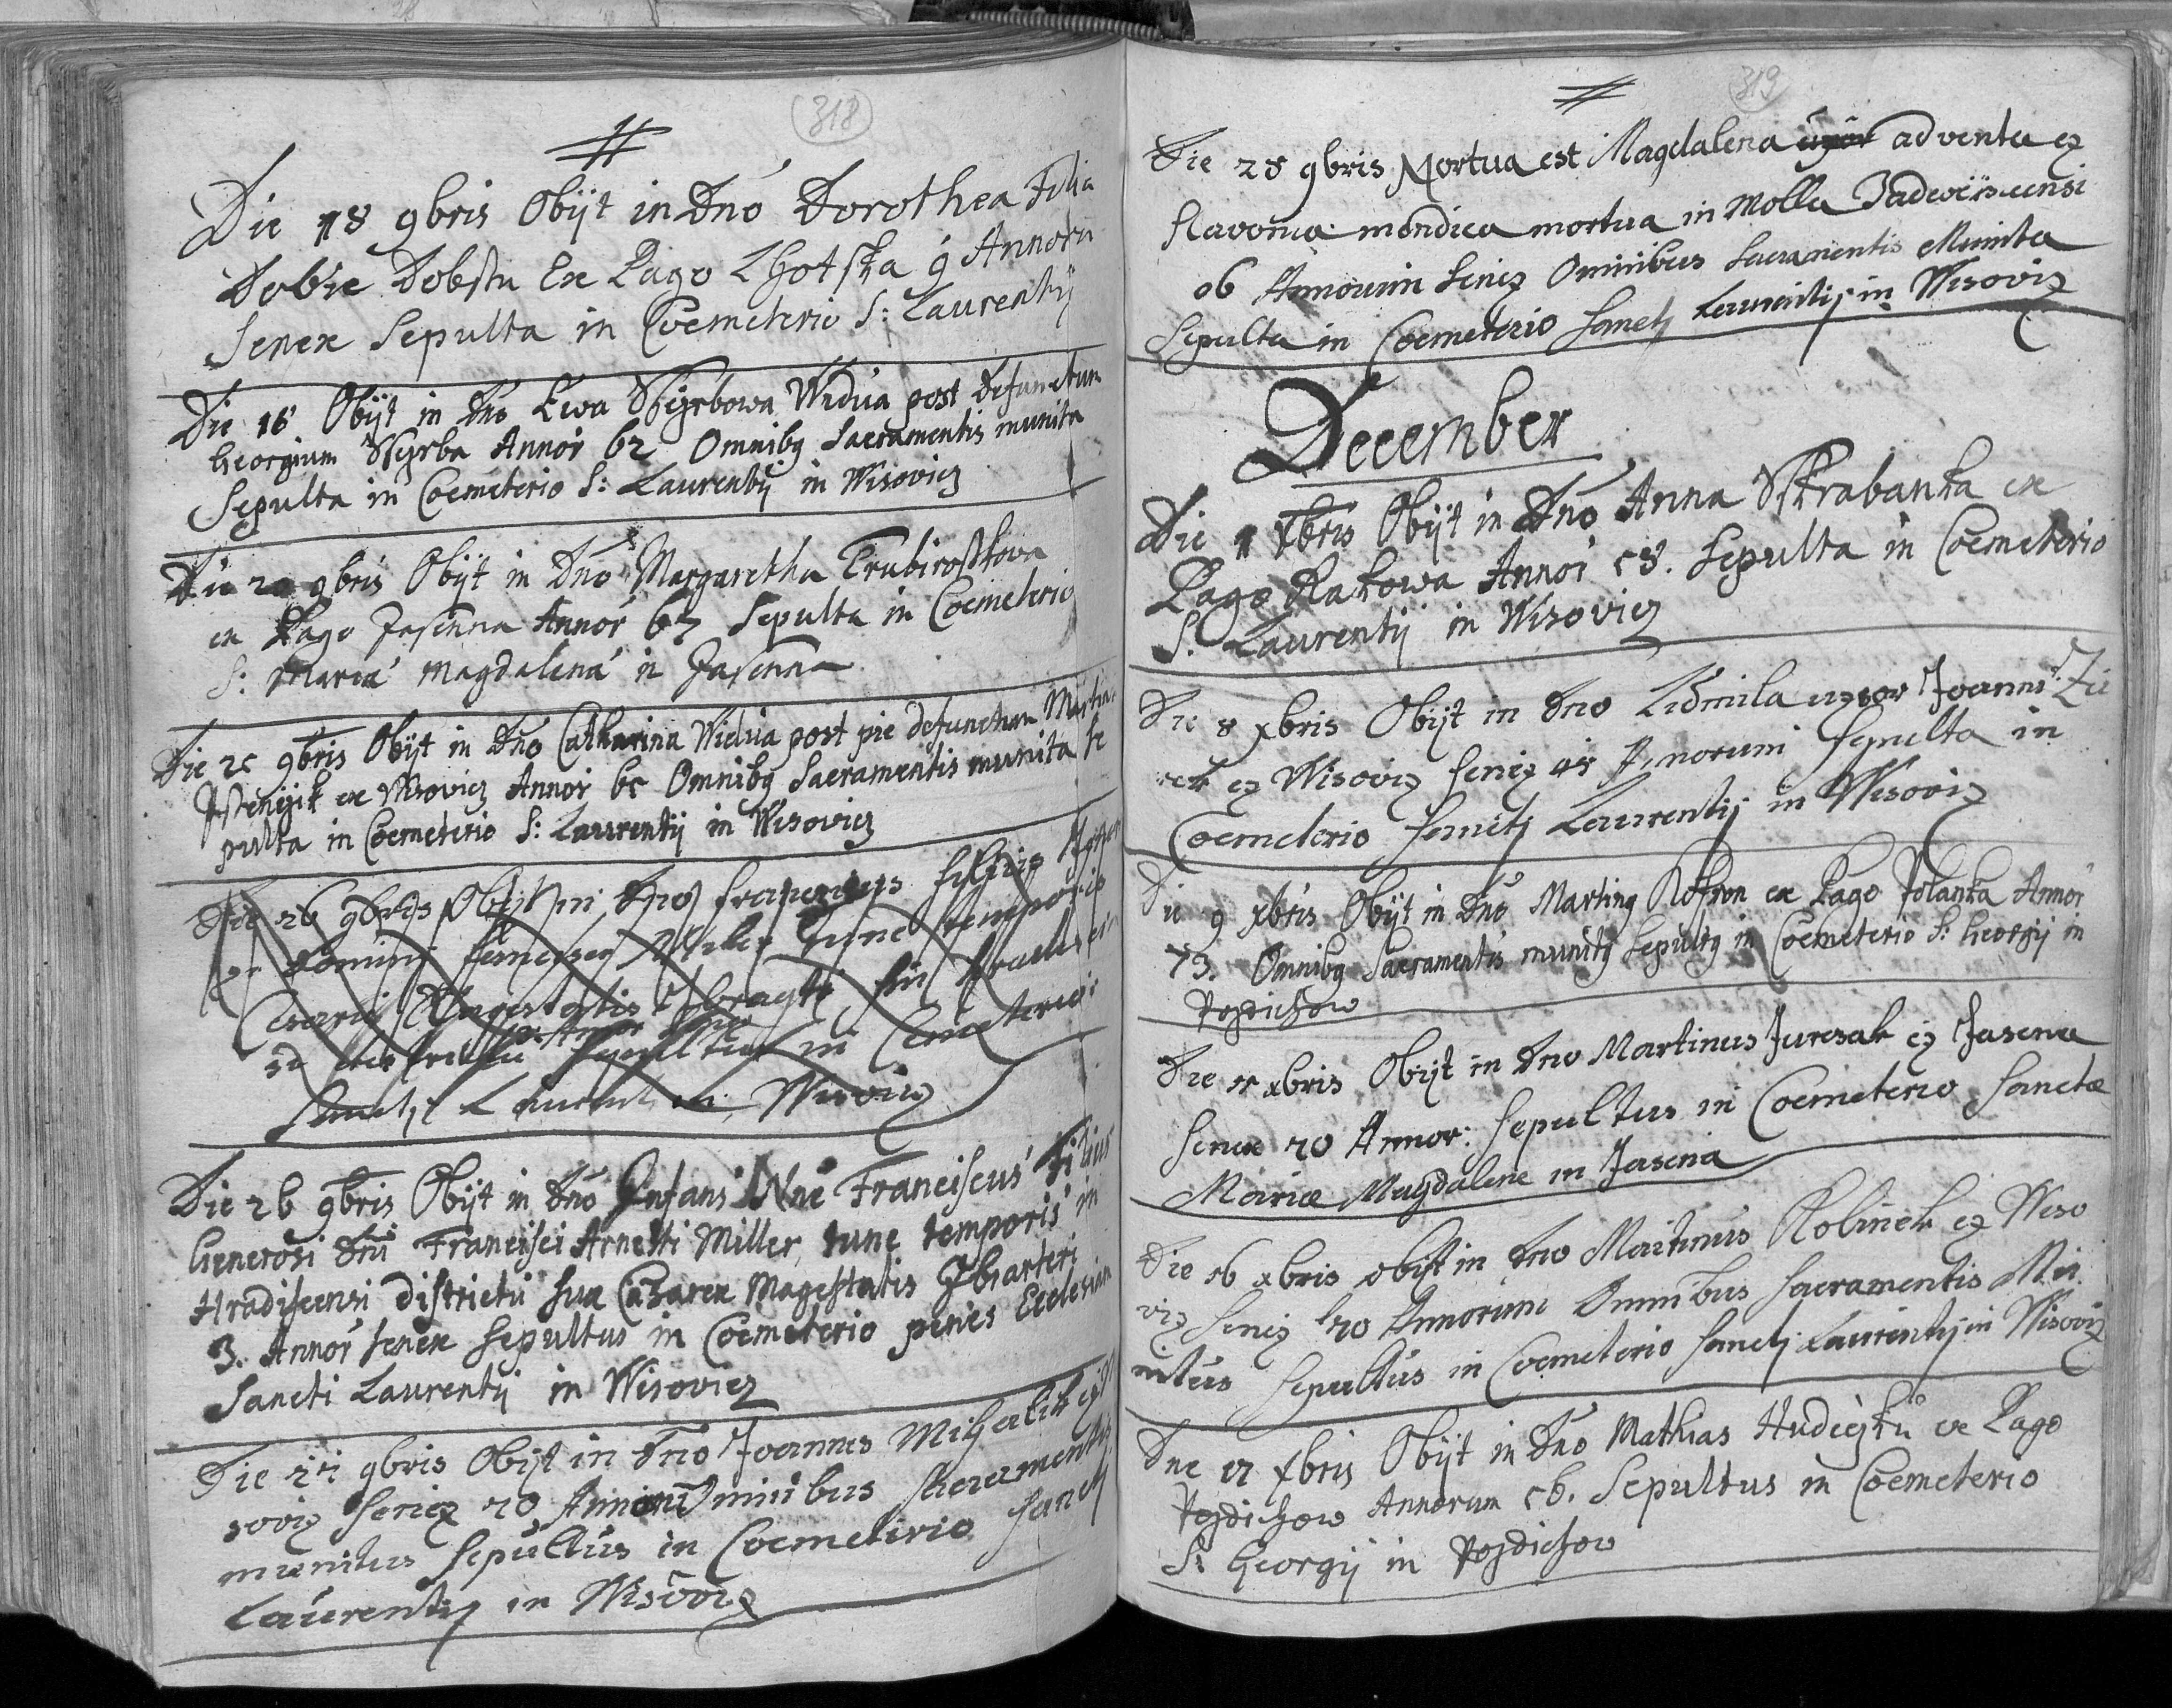 318
Die 18 9bris Obijt in Dno Dorothea Filia
Dobie Dobstu Ex Pago Lhotska 9 Annoru
Senex Sepulta in Coemeterio S: Laurentij
Die 18 Obijt in Dno Ewa Widua post Defunctum
Georgium Annor 62 Omnibg Sacramentis munita
Sepulta in Coemeterio S: Laurentij in Wisovicz
Die 20 9bris Obijt in Dno Margaretha
ex Pago Jasenna Annor Sepulta in Coemeterio
S: Maria Magdalena in Jasenna
Die 25 9bris Obijt in Dno Catharina Widua post pie defunctum Martin
ex Wisovicz Annor 65 Omnibg Sacramentis munita se
pulta in Coemeterio S: Laurentij in Wisovicz
Die 26 9bris Obijt in Dno filius
Domini Miller Tunc temporis
Majestatis
Sepultus in Cemeterio
Wisovicz
Die 26 9bris Obijt in Dno Infans Nne Franciscus Filius
Generosi Dni Francisci Arnesti Miller tunc temporis in
Hradiscensi districtu sux Cazarex Magestatis
3. Annor senex sepultus in Coemeterio penes Ecclesiam
Sancti Laurentij in Wisovicz
Die 9bris Obijt in Dno Joannes Mihalik ez
soviz seniez 70 Omnibus Sacramentis
munitus Sepultus in Coemetirio Sancti
Laurentij in Wisoviz
319
Die 28 9bris Mortua est Magdalena uxor adventa ez
Slavonia mendica mortua in Molla
Seniez Omnibus Sacramentis Munita
Sepulta in Coemeterio Sancti Laurentij in Wisoviz
December
Die 1 xbris Obijt in Dno Anna Skrabanka ex
Pago Rakowa Annor 58. Sepulta in Coemeterio
S. Laurentij in Wisovicz
Die 8 xbris Obijt in Dno Lidmila uxor Joannis
ez Wisoviz seniez 45 Annorum Sepulta in
Coemeterio Sancti Laurentij in Wisoviz
Die 9 xbris Obijt in Dno Marting ex Pago Polanka Annor
73. Omnibg Sacramentis munitg Sepultg in Coemeterio S: Georgij in
Pozdichow
Die xbris Obijt in Dno Martinus Juresak ez Jasena
Senex 70 Annor: Sepultus in Coemeterio Sanctæ
Mariæ Magdalene in Jasena
Die 16 xbris obijt in Dno Martinus Kolinek ez Wiso
viz Seniez 70 Annorum Omnibus Sacramentis Mu
nitus Sepultus in Coemeterio Sancti Laurentij in Wisoviz
Die 17 xbris Obijt in Dno Mathias ex Pago
Pozdichow Annorum 56. Sepultus in Coemeterio
S: Georgij in Pozdichow